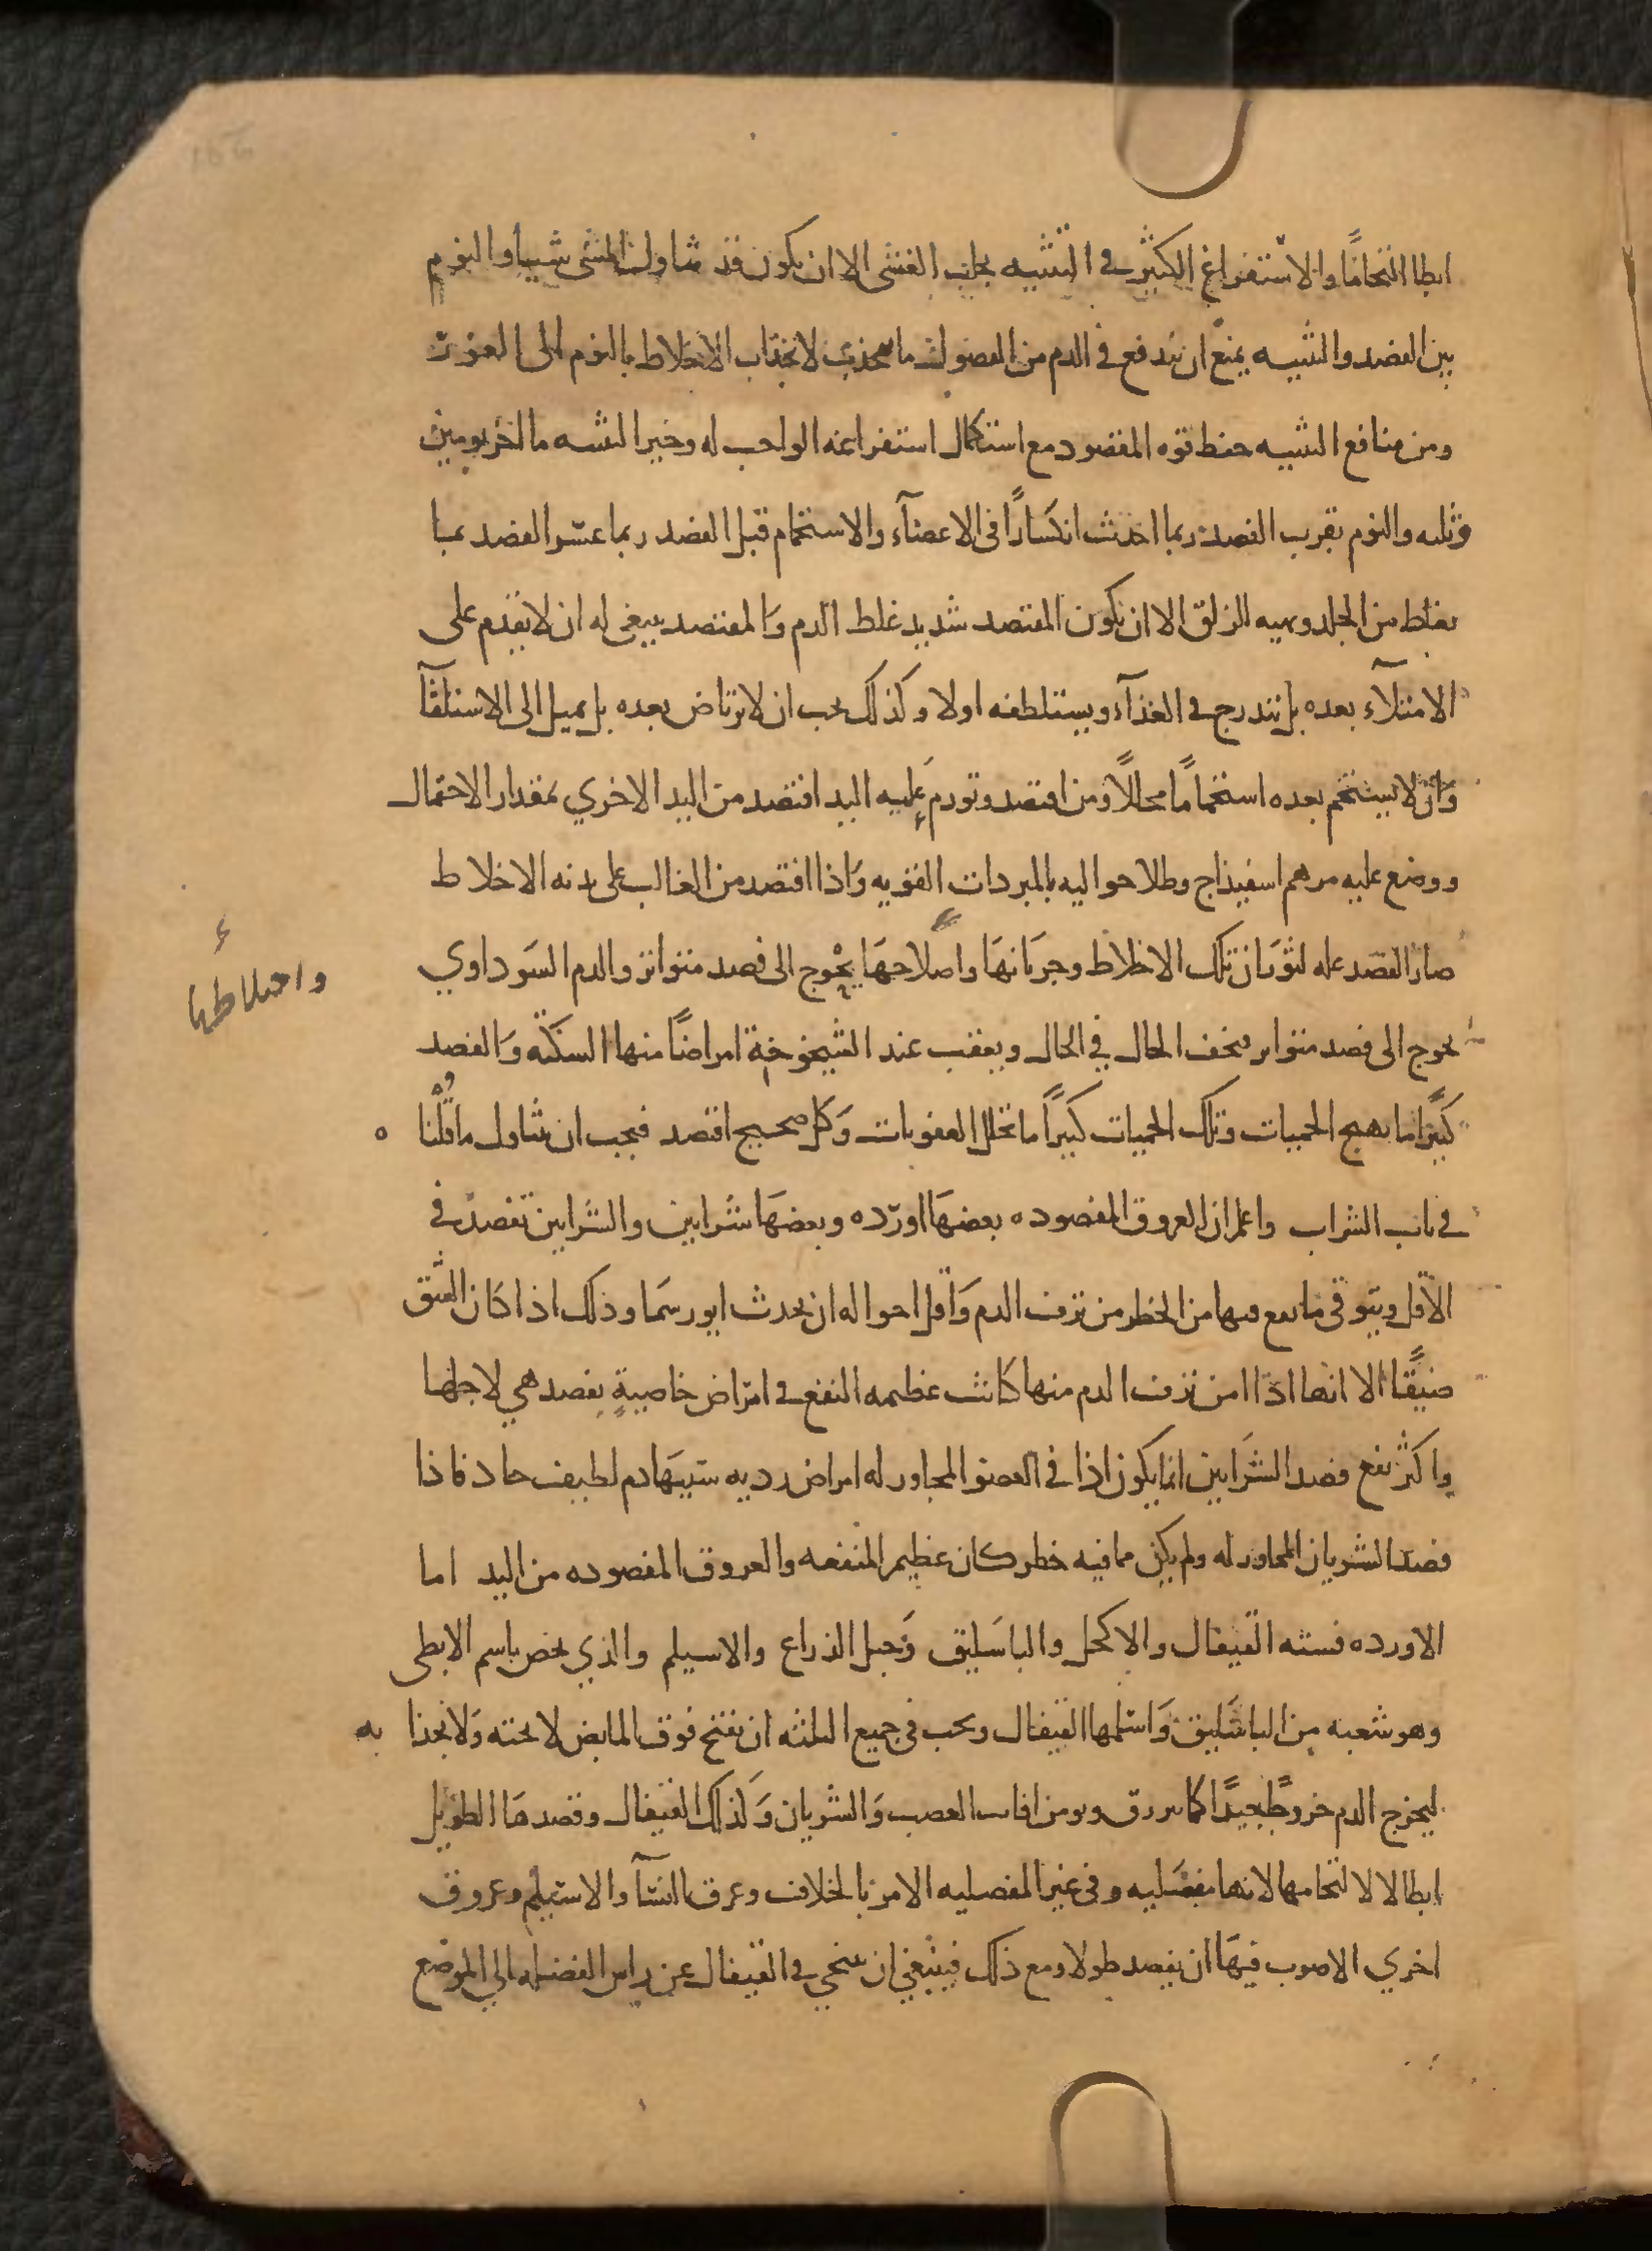 ابطا التحامًا والاستفراغ الكثير في التثنيه يجلب الغشى الا ان يكون قد تناول المثنى شيا والنوم
بين الفصد والتثنيه يمنع ان يندفع في الدم من الفضول ما ينجذب لانجذاب الاخلاط بالنوم الى الغور
ومن منافع التثنيه حفظ قوه المفصود مع استكمال استفراغه الواجب له وخير التثنيه ما اخر يومين
وثلثه والنوم بقرب الفصد ربما احدث انكسارًا في الاعضآء والاستحمام قبل الفصد ربما عسر الفصد بما
يغلط من الجلد ويهيه للزلق الا ان يكون المفتصد شديد غلط الدم والمفتصد ينبغى له ان لا يقدم على
الامتلآء بعده بل يتدرج في الغذآء ويستلطفه اولا وكذلك يجب ان لا يرتاض بعده بل يميل الى الاستلقآ
وان لا يستحم بعده استحمامًا محللًا ومن افتصد وتورم عليه اليد افتصد من اليد الاخري بمقدار الاحتمال
ووضع عليه مرهم اسفيذاج وطلا حواليه بالمبردات القويه واذا افتصد من الغالب على بدنه الاخلاط
صار الفصد عله لثوران تلك الاخلاط وجريانها واصلاحها يحوج الى فصد متواتر والدم السوداوي
واختلاطها
يحوج الى فصد متواتر فيخف الحال في الحال ويعقب عند الشيخوخة امراضًا منها السكته والفصد
كثيرًا ما يهيج الحميات وتلك الحميات كثيرًا ما تحلل العفونات وكل صحيح افتصد فيجب ان يتناول ما قلنا ه
في باب الشراب واعلم ان العروق المفصوده بعضها اورده وبعضها شرايين والشرايين تفصد في
الاقل ويتوقى ما يقع فيها من الخطر من نزف الدم واقل احواله ان يحدث ابورسما وذلك اذا كان الشق
ضيقًا الا انها اذا امن نزف الدم منها كانت عظيمه النفع في امراض خاصيةٍ يفصد هي لاجلها
واكثر نفع فصد الشرايين انما يكون اذا في العضو المجاور له امراض رديه سببها دم لطيف حاد فاذا
فصد الشريان المجاور له ولم يكن مما فيه خطر كان عظيم المنفعه والعروق المفصوده من اليد اما
الاورده فسته القيفال والاكحل والباسليق وحبل الذراع والاسيلم والذي يخص باسم الابطى
وهو شعبه من الباسليق واسلمها القيفال ويجب في جميع الثلثه ان يفتح فوق المابض لا تحته ولا بحذا به
ليخرج الدم خروجًا جيدًا كما يزرق ويومن افات العصب والشريان وكذلك القيفال وفصدها الطويل
ابطا لالتحامها لانها مفصليه وفى غير المفصليه الامر بالخلاف وعرق النسآ والاسيلم وعروق
اخري الاصوب فيها ان يفصد طولا ومع ذلك فينبغي ان ينحي في القيفال عن راس العضله الي الموضع